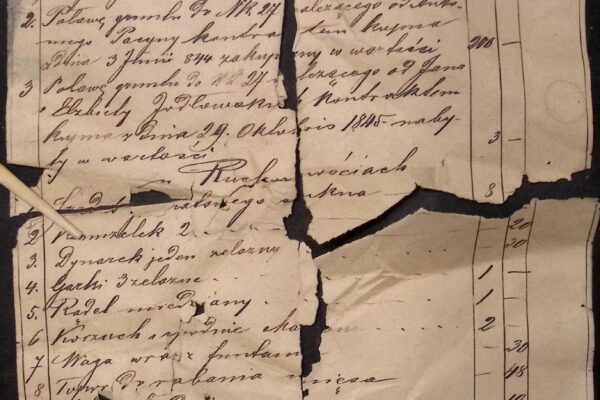 2. Połowę gruntu do Nk 27 należącego od Anto-
niego Pasyny kontraktem kupna
z dnia 3 Junii 844 zakupiony w wartości 200 —
3 Połowę gruntu do Nk 27 należącego od Jana
i Elzbiety Jodłowskich kontraktem
kupna z dnia 29. Oktobris 1845 naby-
ty w wartości 3 —
w Ruchomościach
własnego 3
2 2 20
3. Dynarek jeden zelazny 30
4. Garki 3 zelazne 1 —
5. Rądel miedziany 1 —
6 Korzuch 2 —
7 Waga wraz z funtami 30
8 do rąbania mięsa 48